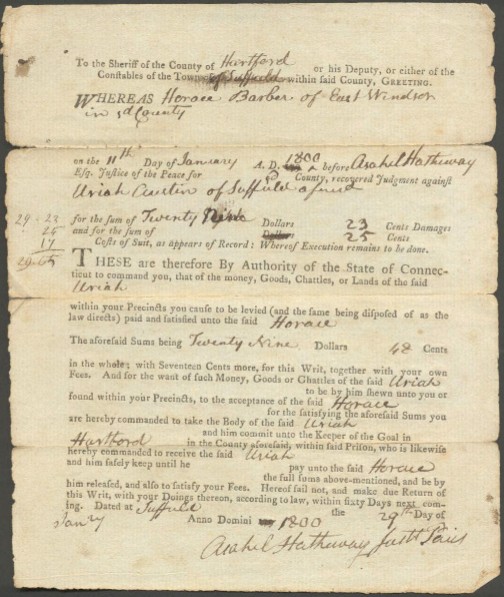 To the Sheriff of the County of Hartford or his Deputy, or either of the
Constables of the Town of Suffield within said County, GREETING.
WHEREAS Horace Barber of East Windsor
in sd County
on the 11th Day of January A. D. 1800 before Asahel Hatheway
Esq. Justice of the Peace for sd County, recovered Judgment against
Uriah Austin of Suffield aforesd
29-23 for the sum of Twenty Nine Dollars 23 Cents Damages
25 and for the sum of Dollars 25 Cents
17 Costs of Suit, as appears of Record: Whereof Execution remains to be done.
29-65 THESE are therefore By Authority of the State of Connec-
ticut to command you, that of the money, Goods, Chattles, or Lands of the said
Uriah
within your Precincts you cause to be levied (and the same being disposed of as the
law directs) paid and satisfied unto the said Horace
The aforesaid Sums being Twenty Nine Dollars 48 Cents
in the whole; with Seventeen Cents more, for this Writ, together with your own
Fees. And for the want of such Money, Goods or Chattles of the said Uriah
to be by him shewn unto you or
found within your Precincts, to the acceptance of the said Horace
for the satisfying the aforesaid Sums you
are hereby commanded to take the Body of the said Uriah
and him commit unto the Keeper of the Goal in
Hartford in the County aforesaid, within said Prison, who is likewise
hereby commanded to receive the said Uriah
and him safely keep until he pay unto the said Horace
the full sums above-mentioned, and be by
him released, and also to satisfy your Fees. Hereof fail not, and make due Return of
this Writ, with your Doings thereon, according to law, within sixty Days next com-
ing. Dated at Suffield the 29th Day of
Jany Anno Domini 1800
Asahel Hatheway Just Pais